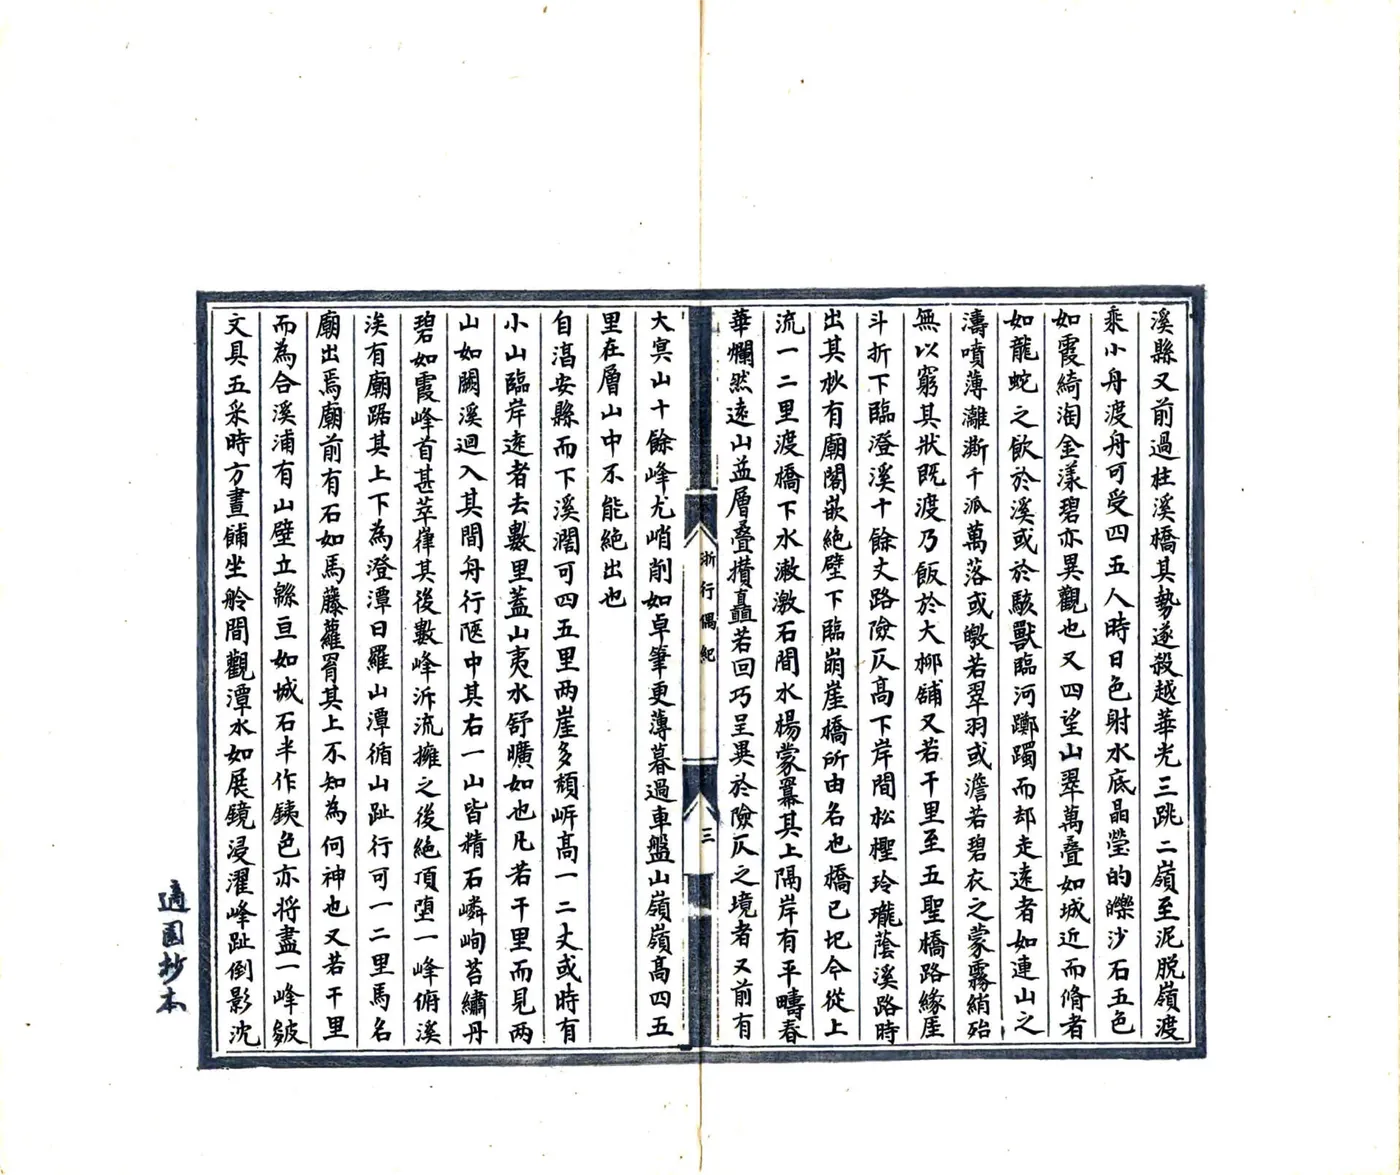 溪縣又前過桂溪橋其勢遂殺越華光三跳二嶺至泥脱嶺渡
乘小舟渡舟可受四五人時日色射水底晶瑩的皪沙石五色
如霞綺淘金漾碧亦異觀也又四望山翠萬疊如城近而脩者
如龍蛇之飲於溪或於駭獸臨河躑躅而却走遠者如連山之
濤噴薄灕澌千派萬落或皦若翠羽或澹若碧衣之蒙霧綃殆
無以窮其狀既渡乃飯於大栁舖又若干里至五聖橋路緣厓
斗折下臨澄溪十餘丈路險仄高下岸間松檉玲瓏蔭溪路時
出其杪有廟閣嵌絶壁下臨崩崖橋所由名也橋已圮今從上
流一二里渡橋下水潄激石間水楊蒙羃其上隔岸有平疇春
華爛然遠山益層疊攢矗若回巧呈異於險仄之境者又前有
大㝠山十餘峰尤峭削如卓筆更薄暮過車盤山嶺嶺高四五
里在層山中不能絶出也
自湻安縣而下溪濶可四五里两崖多頳岓高一二丈或時有
小山臨岸遠者去數里蓋山夷水舒曠如也凡若干里而見两
山如闕溪迴入其間舟行陿中其右一山皆精石嶙峋苔繡丹
碧如霞峰首甚崒嵂其後數峰泝流擁之後絶頂堕一峰俯溪
涘有廟踞其上下為澄潭曰羅山潭循山趾行可一二里馬名
廟出焉廟前有石如馬藤蘿罥其上不知為何神也又若干里
而為合溪浦有山壁立緜亘如城石半作銕色亦将盡一峰皴
文具五采時方晝餔坐舲間觀潭水如展鏡浸濯峰趾倒影沈
浙行偶紀
三
適園抄本